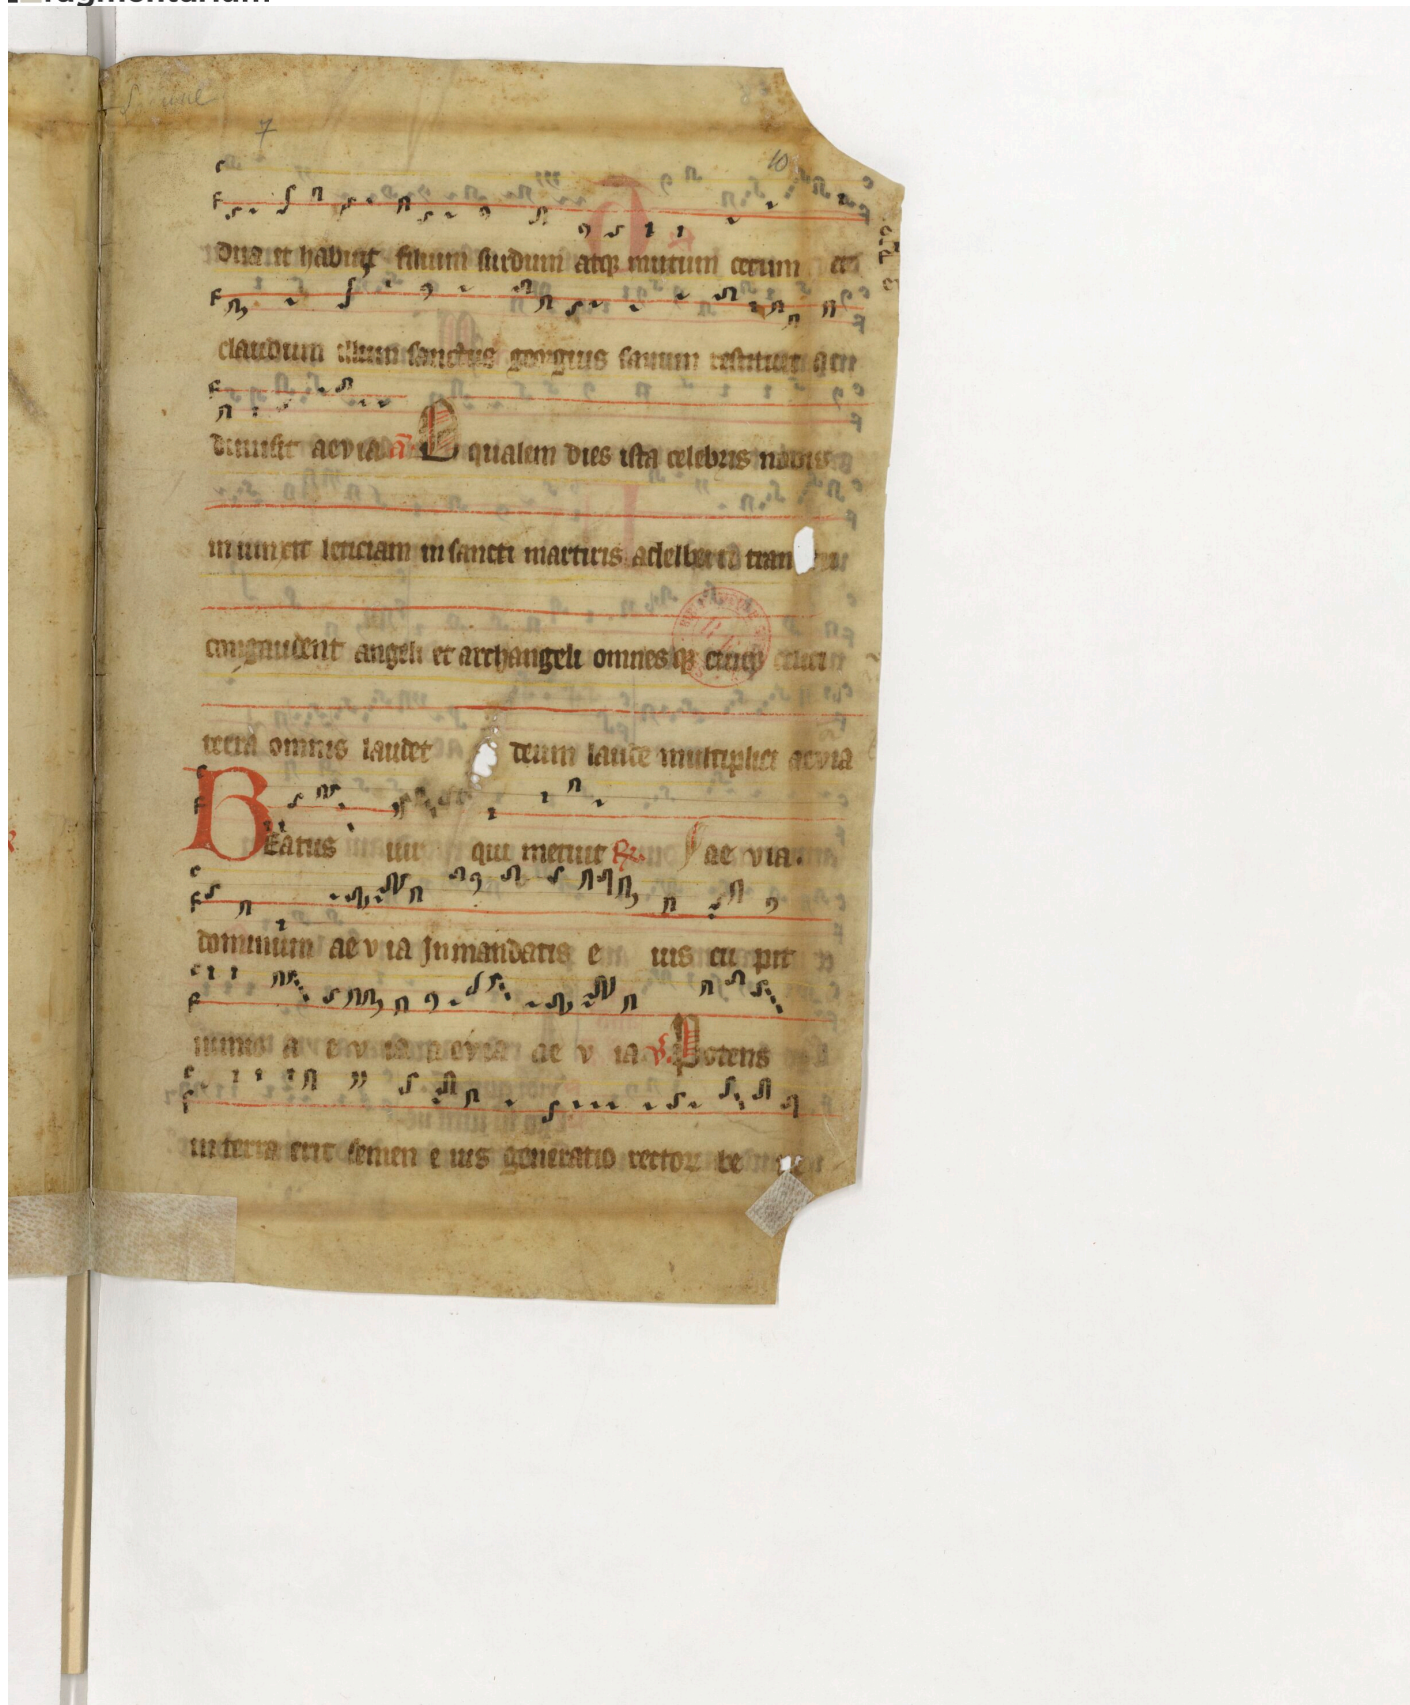 fragmentarium
7
10
dua et habuit filium surdum atq mutum cecum et
claudum illum sanctus georgius sanum restituit qui
aevia a qualem dies ista celebris nobis
leticiam in sancti martiris adelberti tran
congaudent angeli et archangeli omnesq
terra omnis laudet deum laude multiplici aevia
Beatus uir qui metuit R ae via.
dominum ae v ia In mandatis e ius cu pit
nimis a e v ia aevia ae v ia V Potens
in terra erit semen e ius generatio rector